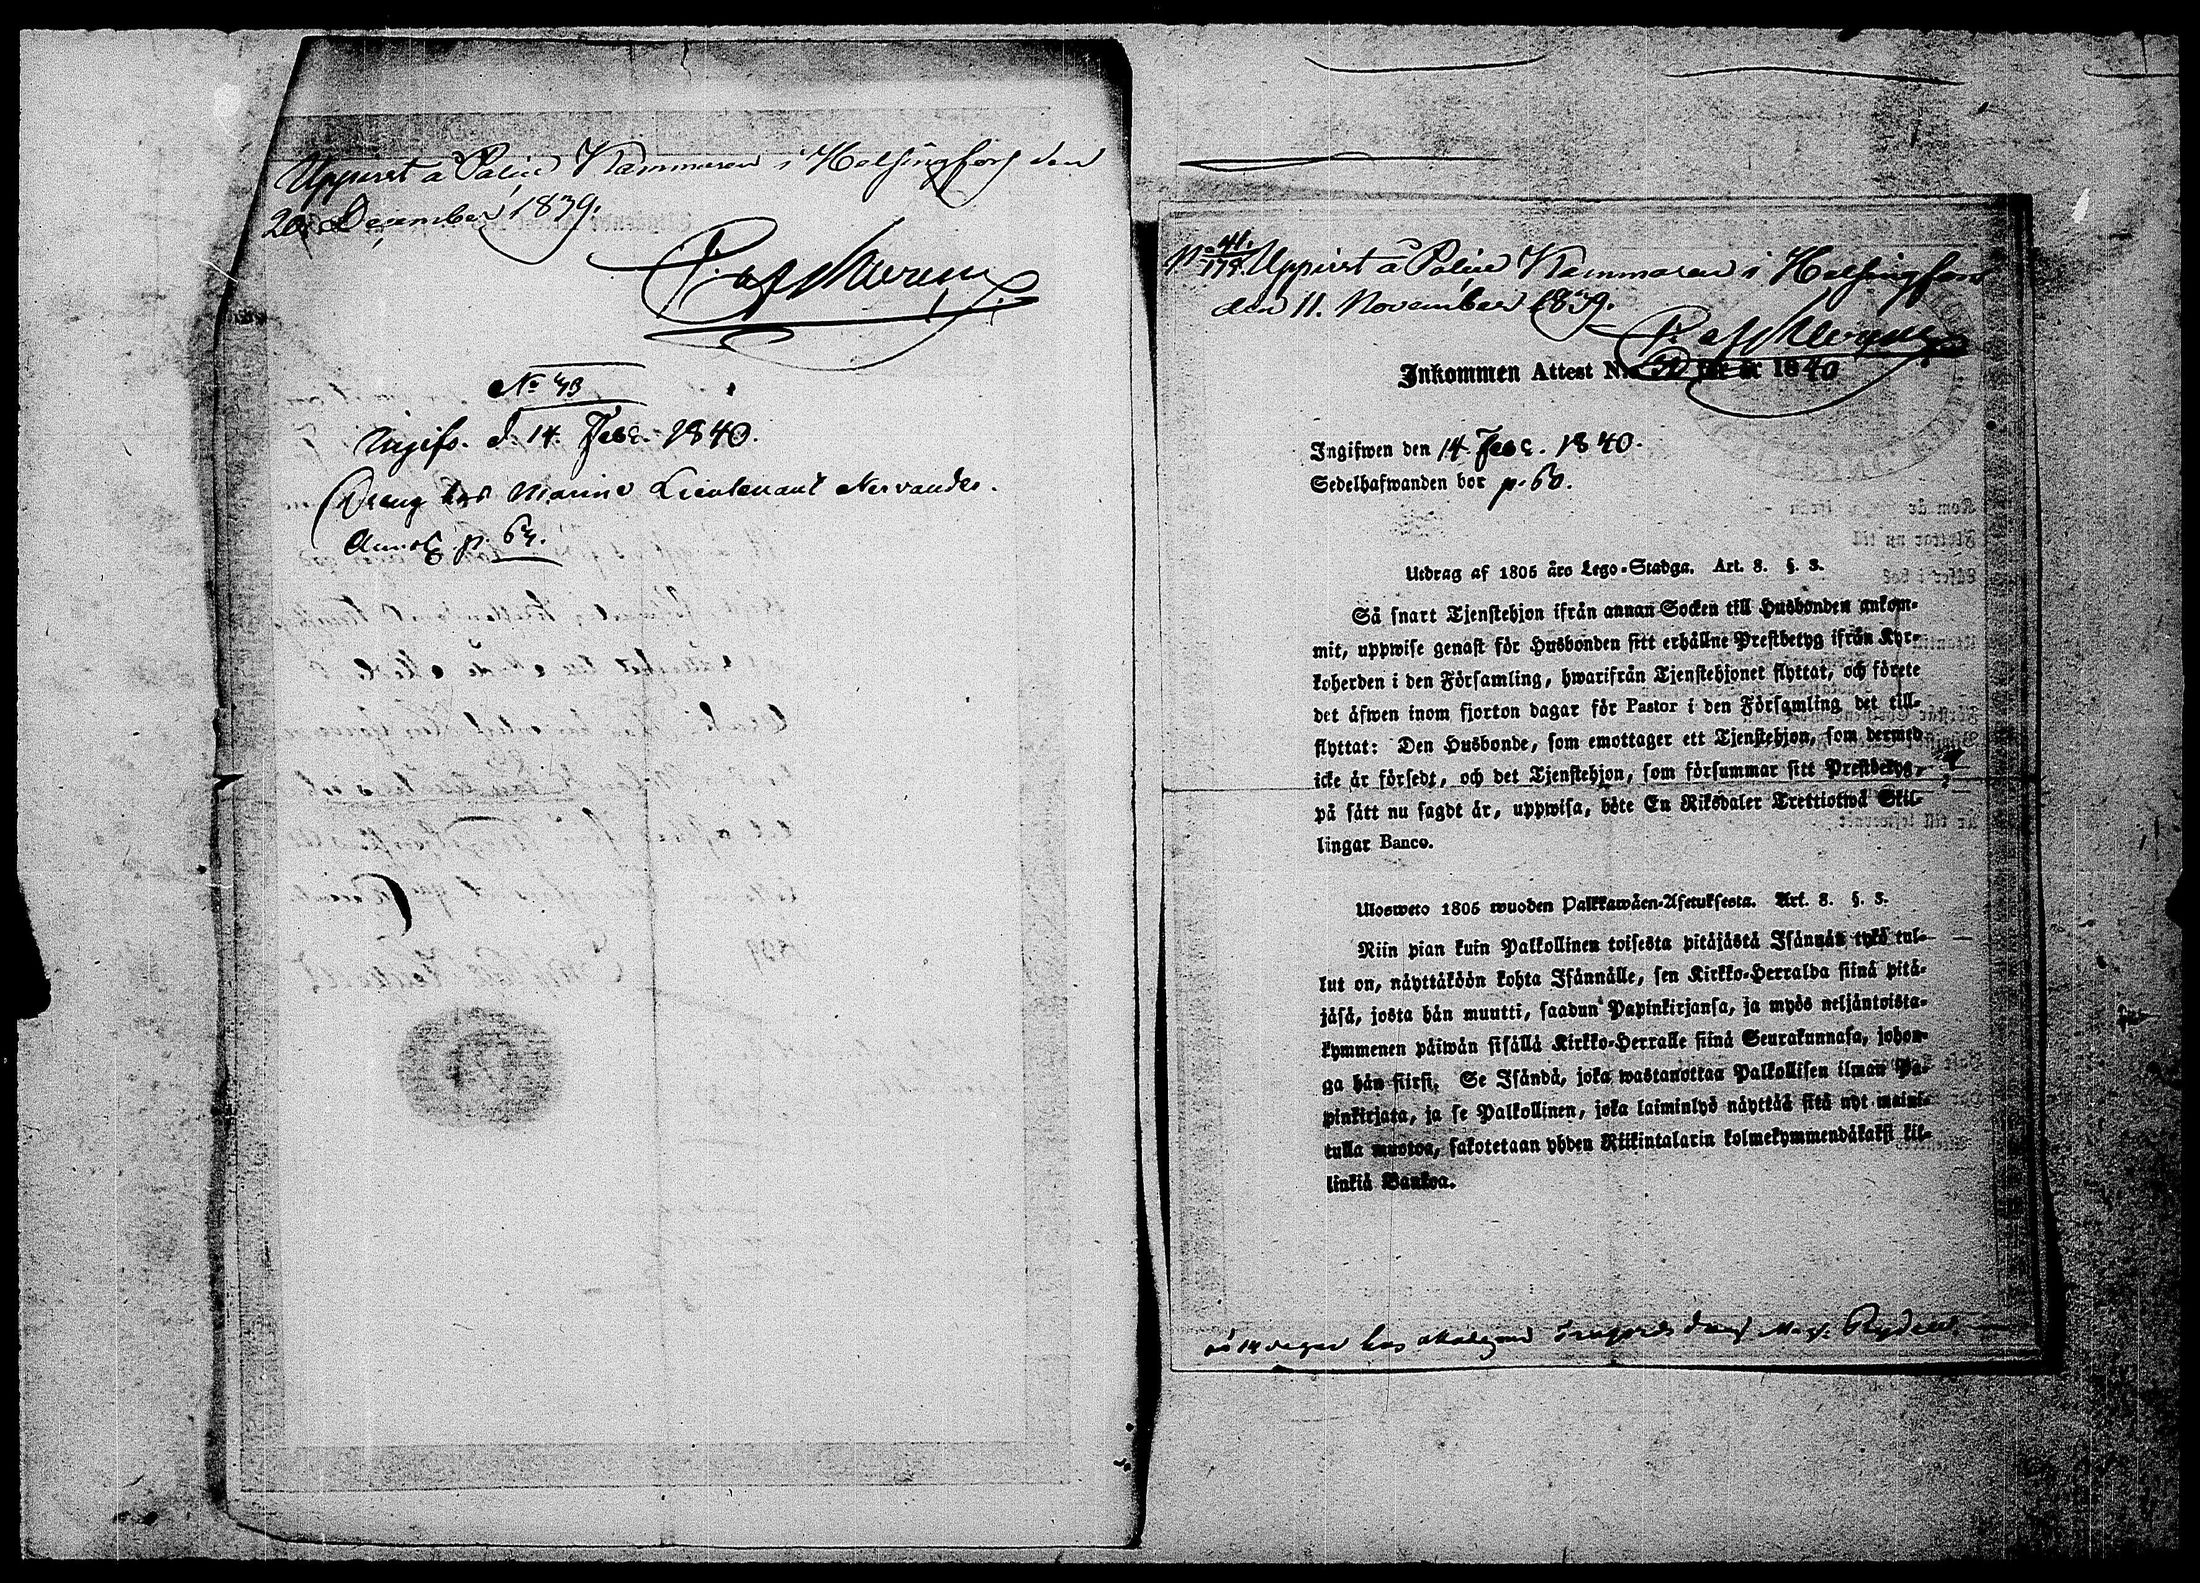 Uppvist å Police Kammaren i Helsingfors den
20 December 1839.
P. af
No 73
Ingifv. d. 14. Febr. 1840.
Dreng hos Marine Lieutenant Nervander.
Annot. p. 64.
No 41.
178. Uppvist å Police Kammaren i Helsingfors
den 11. November 1839.
P. af
Inkommen Attest N:o 1840
Ingifwen den 14. Febr. 1840.
Sedelhafwanden bor p. 60.
Utdrag af 1805 års Lego-Stadga. Art. 8. §. 3.
Så snart Tjenstehjon ifrån annan Socken till Husbonden ankom-
mit, uppwise genast för Husbonden sitt erhållne Prestbetyg ifrån Kyr-
koherden i den Församling, hwarifrån Tjenstehjonet flyttat, och förete
det äfwen inom fjorton dagar för Pastor i den Församling det till-
flyttat: Den Husbonde, som emottager ett Tjenstehjon, som dermed
icke är försedt, och det Tjenstehjon, som försummar sitt Prestbetyg,
på sätt nu sagdt är, uppwisa, böte En Riksdaler Trettiotwå Skil-
lingar Banco.
Ulosweto 1805 wuoden Palkkawäen-Asetuksesta. Art. 8. §. 3.
Niin pian kuin Palkollinen toisesta pitäjästä Isännän tykö tul-
lut on, näyttäköön kohta Isännälle, sen Kirkko-Herralda siinä pitä-
jäsä, josta hän muutti, saadun Papinkirjansa, ja myös neljäntoista-
kymmenen päiwän sisällä Kirkko-Herralle siinä Seurakunnasa, johon-
ga hän siirsi. Se Isändä, joka wastanottaa Palkollisen ilman Pa-
pinkirjata, ja se Palkollinen, joka laiminlyö näyttää sitä nyt mainit-
tulla muotoa, sakotetaan yhden Riikintalarin kolmekymmendäkaksi kil-
linkiä Bankoa.
på 14 dagar hos Trägårds Mag. Rydell